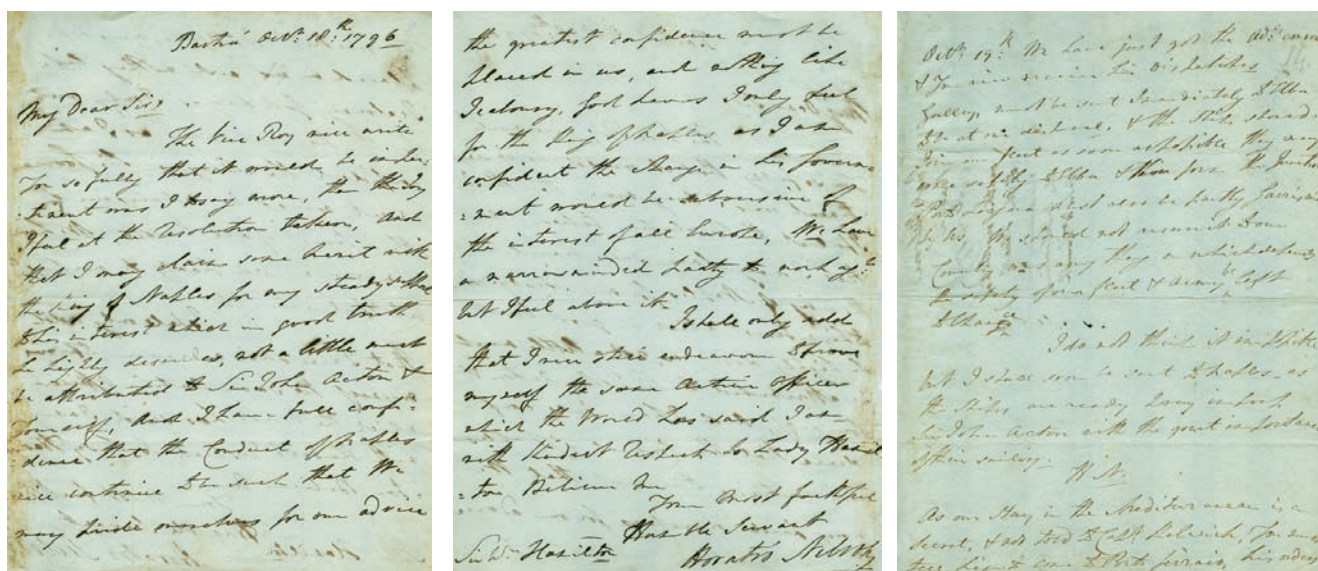 Bastia Octr. 18th. 1796
My Dear Sir,
The Vice Roy will write
You so fully that it would be imper-
tinent was I to say more, than that
I feel at the resolution taken, and
that I may claim some merit with
the King of Naples for my steady
to his interest which in good truth
he highly deserves, not a little must
be attributed to Sir John Acton &
Yourself, and I have full confi-
dence that the Conduct of Naples
will continue to be such that we
may pride ourselves for our advice
the greatest confidence must be
placed in us, and nothing like
Jealousy, God knows I only feel
for the King of Naples as I am
confident the change in his Govern-
=ment would be subversive of
the interest of all Europe, We have
a narrowminded party to work agst.
but I feel above it.
I shall only add
that I will still endeavour to prove
myself the same active officer
which the World has said I am
with kindest respects to Lady Hamil
=ton Believe Me
Your most faithful
Humble Servant
Horatio Nelson
Sir Wm. Hamilton
Octr. 19th. We have just got the
& You will receive the dispatches
must be sent immediately to Elba
& the Ships should
join our fleet as soon as possible they may
safely to Elba & there form the junction
also be partly garrison
by us, We should not in some
Country any thing on which depends
the safety of our fleet & Army, left
to chance
I do not think it
but I shall soon be sent to Naples, as
the Ships are ready
Sir John Acton with the great importance
of their sailing.
H N.
As our stay in the Mediterranean is a
secret, & not told to Capt.
come to Porto Ferraio, his orders